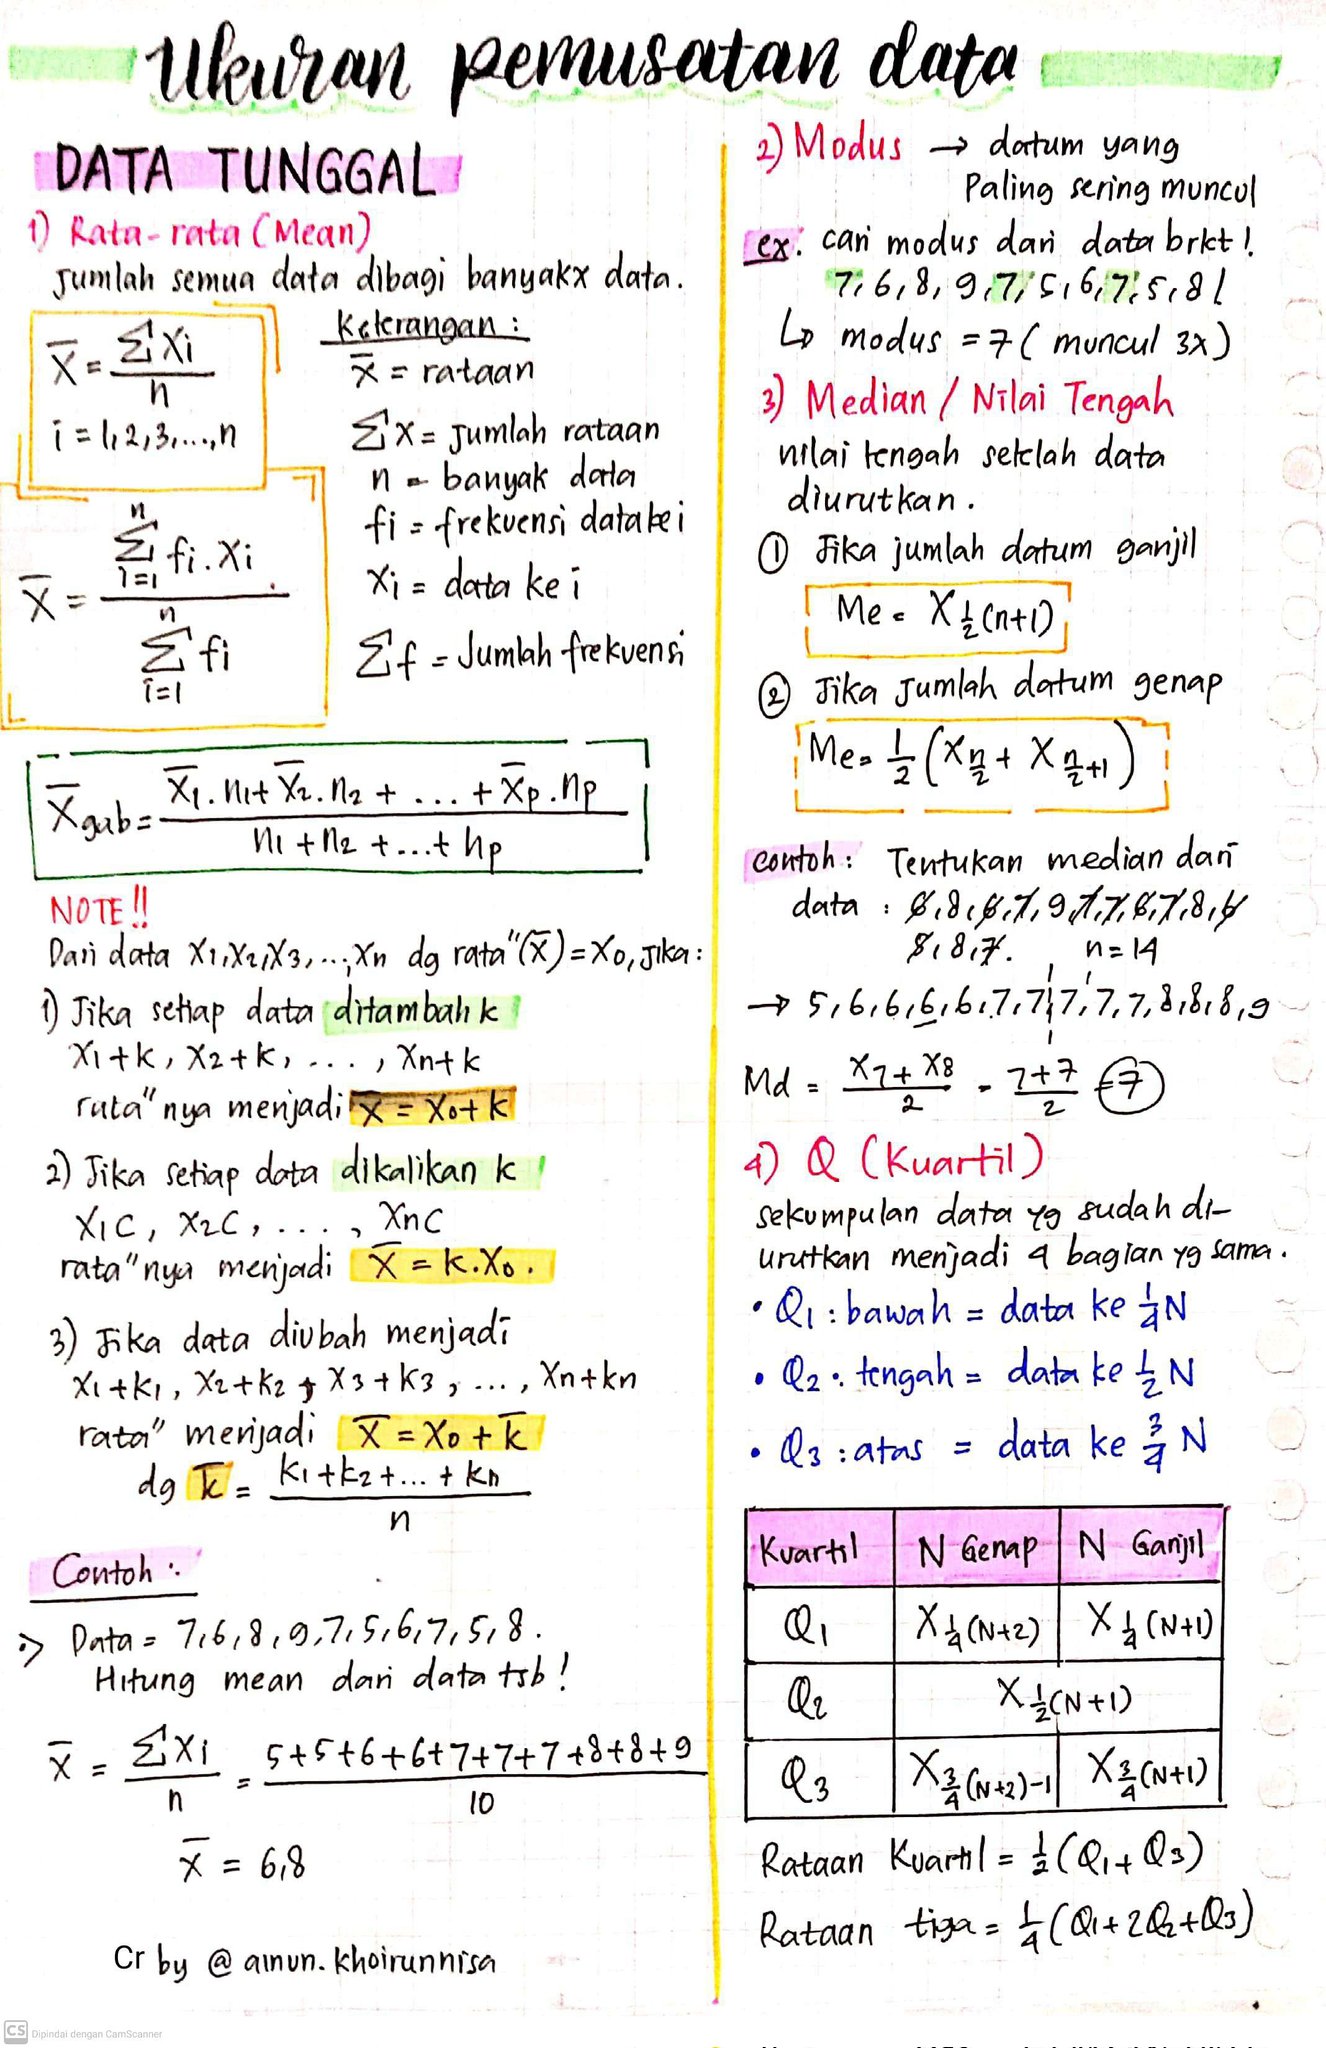 Ukuran pemusatan data
DATA TUNGGAL
1) Rata-rata (Mean)
Jumlah semua data dibagi banyakx data.
X̅ = ΣXi / n
i = 1, 2, 3, ..., n
Keterangan :
x̅ = rataan
Σx = Jumlah rataan
n = banyak data
fi = frekuensi data ke i
Xi = data ke i
Σf = Jumlah frekuensi
X̅ = Σ(i=1..n) fi . Xi / Σ(i=1..n) fi
X̅gab = (X̅1 . n1 + X̅2 . n2 + ... + X̅p . np) / (n1 + n2 + ... + np)
NOTE!!
Dari data X1, X2, X3, ..., Xn dg rata" (X̅) = X0, Jika :
1) Jika setiap data ditambah k
X1 + k, X2 + k, ...., Xn + k
rata" nya menjadi X̅ = X0 + k
2) Jika setiap data dikalikan k
X1C, X2C, ...., XnC
rata" nya menjadi X̅ = k.X0.
3) Jika data diubah menjadi
X1 + k1, X2 + k2, X3 + k3, ..., Xn + kn
rata" menjadi X̅ = X0 + k̅
dg k̅ = (k1 + k2 + ... + kn) / n
Contoh :
Data = 7, 6, 8, 9, 7, 5, 6, 7, 5, 8.
Hitung mean dari data tsb !
X̅ = ΣXi / n = (5+5+6+6+7+7+7+8+8+9) / 10
X̅ = 6,8
Cr by @ ainun.khoirunnisa
2) Modus → datum yang
Paling sering muncul
ex: cari modus dari data brkt !
7, 6, 8, 9, 7, 5, 6, 7, 5, 8 !
↳ modus = 7 ( muncul 3x)
3) Median / Nilai Tengah
nilai tengah setelah data
diurutkan.
① Jika jumlah datum ganjil
Me = X ½(n+1)
② Jika Jumlah datum genap
Me = ½ (X n/2 + X n/2+1)
contoh : Tentukan median dari
data :
8, 8, 7. n = 14
→ 5, 6, 6, 6, 6, 7, 7, 7, 7, 7, 8, 8, 8, 9
Md = (X7 + X8) / 2 = (7+7) / 2 = 7
4) Q (Kuartil)
sekumpulan data yg sudah di-
urutkan menjadi 4 bagian yg sama.
• Q1 : bawah = data ke ¼ N
• Q2 : tengah = data ke ½ N
• Q3 : atas = data ke ¾ N
Kuartil N Genap N Ganjil
Q1 X ¼(N+2) X ¼(N+1)
Q2 X ½(N+1)
Q3 X ¾(N+2)-1 X ¾(N+1)
Rataan Kuartil = ½ (Q1 + Q3)
Rataan tiga = ¼ (Q1 + 2Q2 + Q3)
CS Dipindai dengan CamScanner